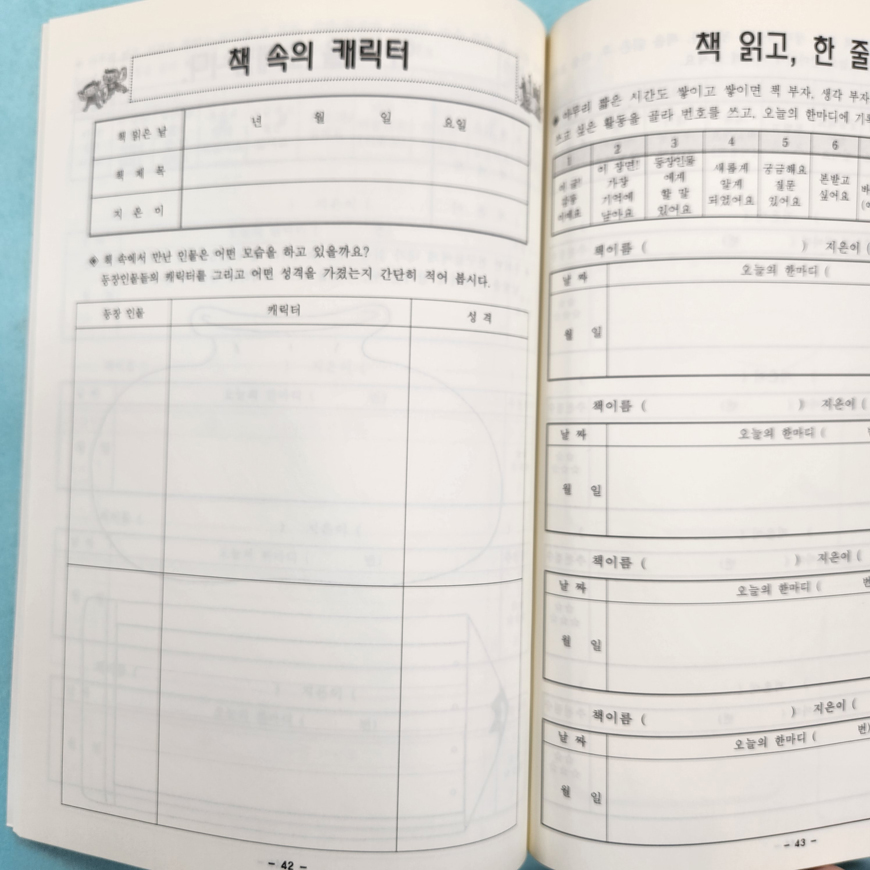 책 속의 캐릭터
책 읽은 날 년 월 일 요일
책 제 목
지 은 이
◈ 책 속에서 만난 인물은 어떤 모습을 하고 있을까요?
등장인물들의 캐릭터를 그리고 어떤 성격을 가졌는지 간단히 적어 봅시다.
등장 인물 캐릭터 성 격
- 42 -
책 읽고, 한 줄
◈ 아무리 짧은 시간도 쌓이고 쌓이면 책 부자, 생각 부자
쓰고 싶은 활동을 골라 번호를 쓰고, 오늘의 한마디에 기록
1 2 3 4 5 6
이 장면! 가장 기억에 남아요
등장인물에게 할 말 있어요
새롭게 알게 되었어요
궁금해요 질문 있어요
본받고 싶어요
책이름 ( ) 지은이 (
날 짜 오늘의 한마디 (
월 일
책이름 ( ) 지은이 (
날 짜 오늘의 한마디 (
월 일
책이름 ( ) 지은이 (
날 짜 오늘의 한마디 ( 번
월 일
책이름 ( ) 지은이 (
날 짜 오늘의 한마디 ( 번)
월 일
- 43 -